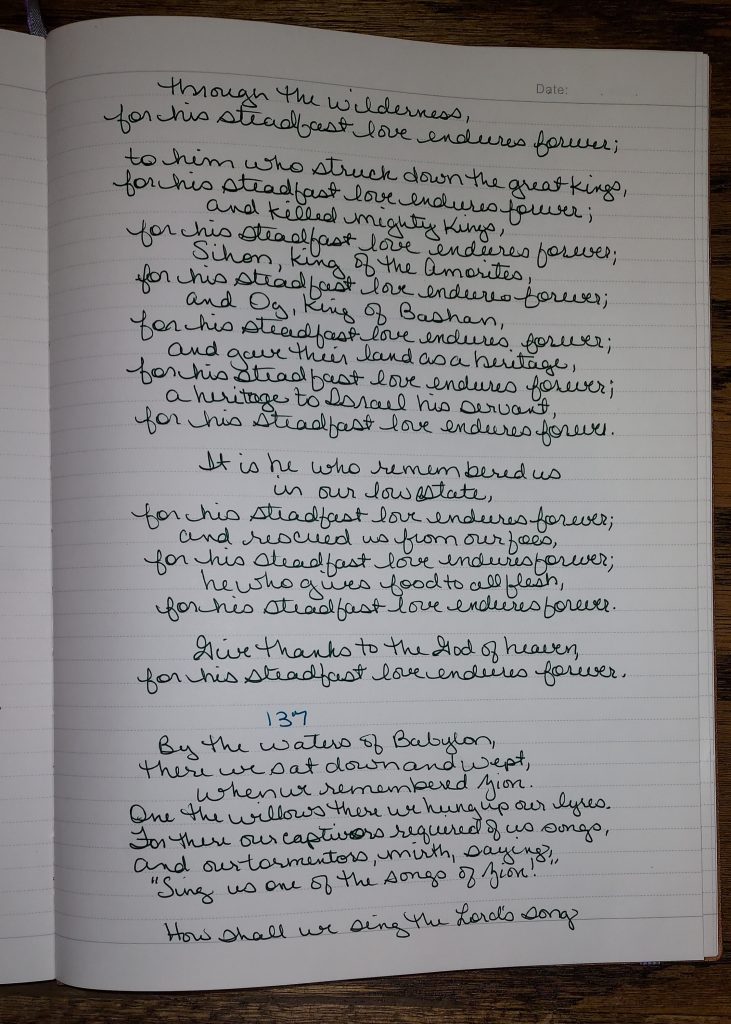 Date:
through the wilderness,
for his steadfast love endures forever;
to him who struck down the great kings,
for his steadfast love endures forever;
and killed mighty kings,
for his steadfast love endures forever;
Sihon, king of the Amorites,
for his steadfast love endures forever;
and Og, King of Bashan,
for his steadfast love endures forever;
and gave their land as a heritage,
for his steadfast love endures forever;
a heritage to Israel his servant,
for his steadfast love endures forever.
It is he who remembered us
in our low estate,
for his steadfast love endures forever;
and rescued us from our foes,
for his steadfast love endures forever;
he who gives food to all flesh,
for his steadfast love endures forever.
Give thanks to the God of heaven,
for his steadfast love endures forever.
137
By the waters of Babylon,
there we sat down and wept,
when we remembered Zion.
One the willows there we hung up our lyres.
For there our captivors required of us songs,
and our tormentors, mirth, saying,
"Sing us one of the songs of Zion!"
How shall we sing the Lord's song